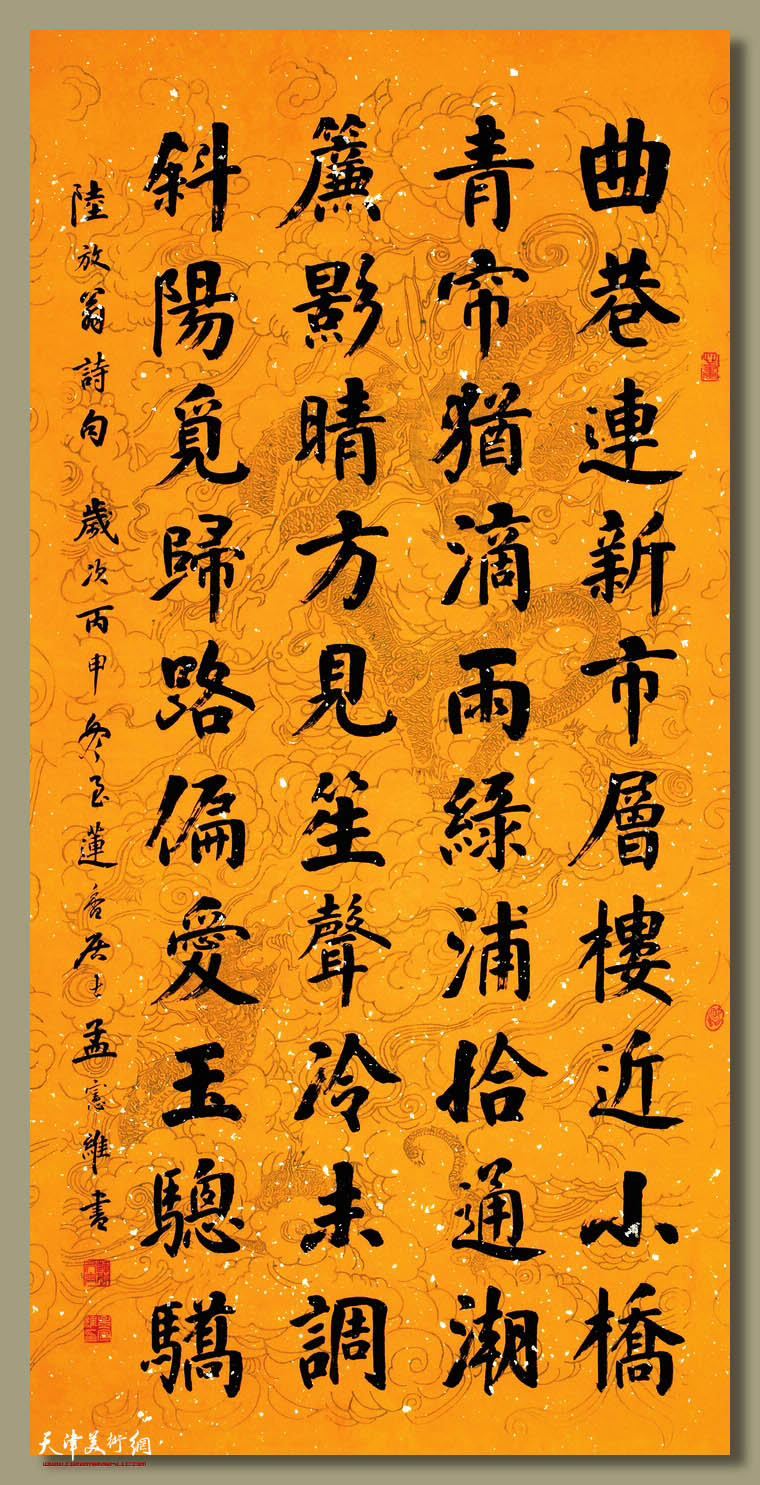 曲巷連新市層樓近小橋
青帘猶滴雨綠浦拾通潮
簾影晴方見笙聲冷未調
斜陽覓歸路偏愛玉驄驕
陸放翁詩句 歲次丙申冬至蓮香居士孟憲維書
天津美術網